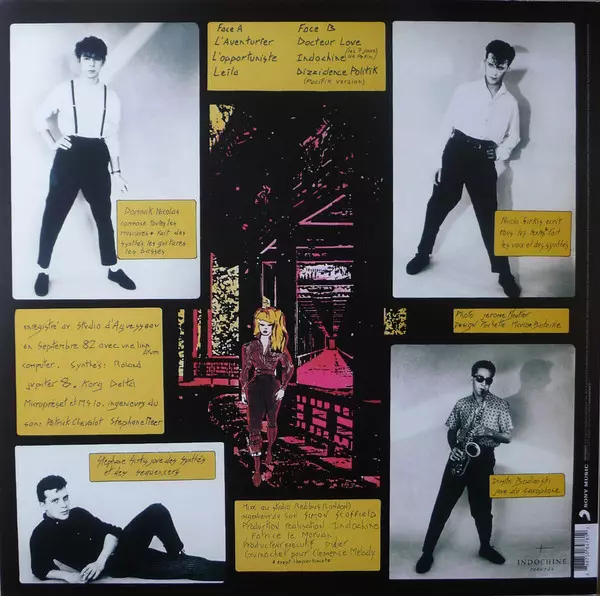 Face A
L'Aventurier
L'opportuniste
Leïla
Face B
Docteur Love
Indochine (les 7 jours de Pékin)
Dizzidence Politik
(Pacifik version)
Dominik Nicolas
compose toutes les
musiques + fait des
synthés, les guitares
les basses
Nicola Sirkis écrit
tous les textes + fait
les voix et des synthés
enregistré au studio d'Aguesseau
en septembre 82 avec une linn drum
computer. Synthés: Roland
Jupiter 8. Korg Delta
Micropreset et MS 10. ingenieurs du
son: Patrick Chevalot Stephane
Photo jerome
Design
Stephane Sirkis joue des synthés
et des sequencers
Dimitri Bodianski
joue du saxophone
Mixé au studio Redbus (London)
ingenieur du son SIMON SCOFFIELD
Production réalisation Indochine
Patrice le
Producteur executif Didier
Guinochet pour Clemence Melody
* except l'opportuniste
INDOCHINE
RECORDS
SONY MUSIC